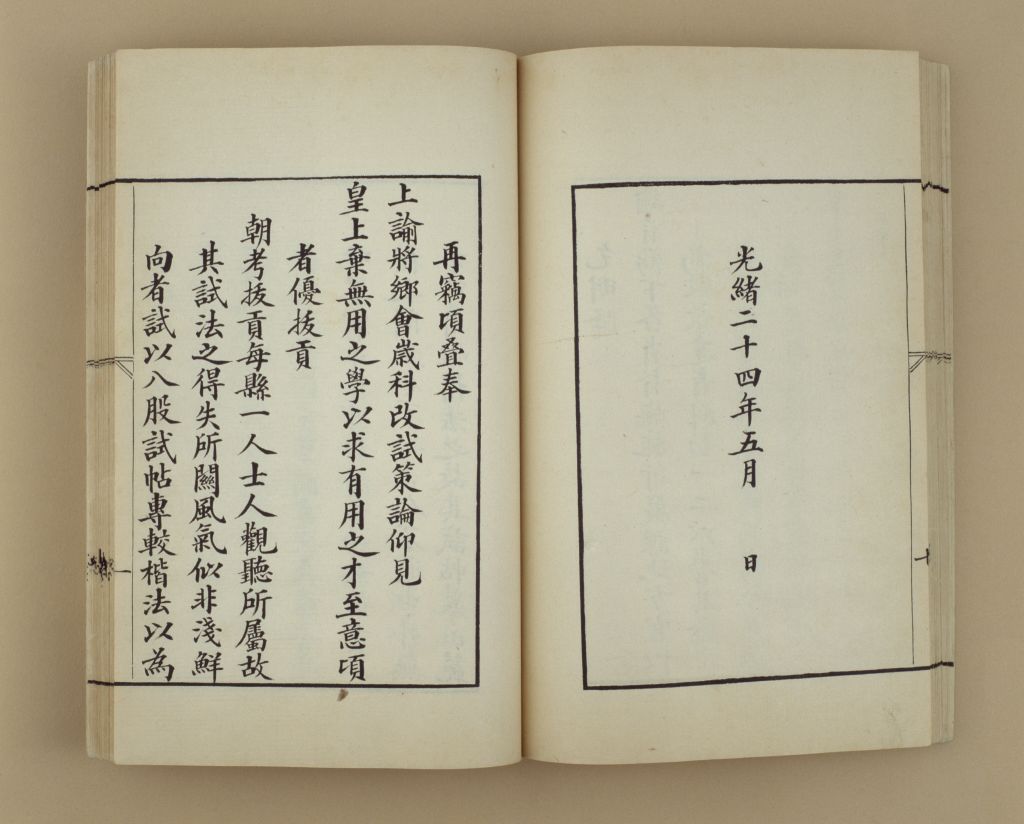 光緒二十四年五月　日
再竊頃叠奉
上諭將鄉會歲科改試策論仰見
皇上棄無用之學以求有用之才至意頃
者優拔貢
朝考拔貢每縣一人士人觀聽所屬故
其試法之得失所關風氣似非淺鮮
向者試以八股試帖專較楷法以為